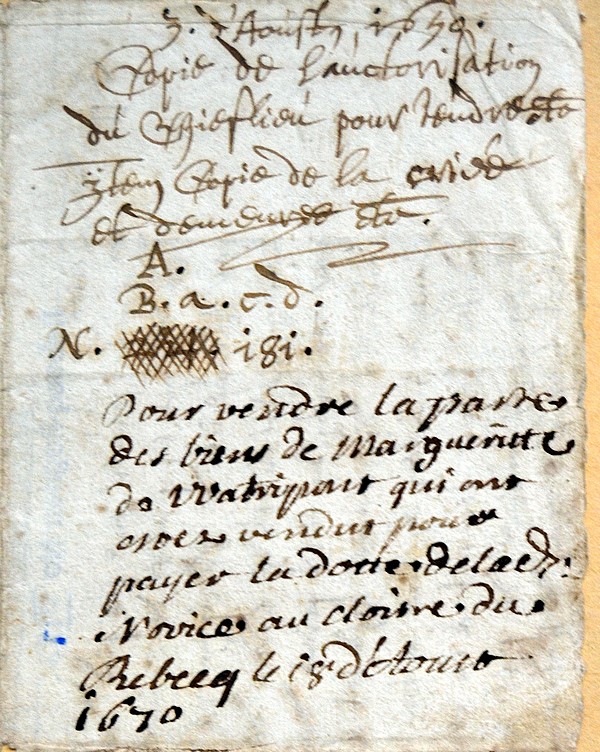 3. d'Aoust, 1650.
Copie de l'auctorisation
du Chieflieu pour vendre etc
Item Copie de la criée
et demeurée etc.
A.
B. a. c. d.
N. 181.
Pour vendre la parte
des biens de Margueritte
de Watripont qui ont
estez vendut pour
payer la dotte de la dt:
Novice au cloitre du
Rebecq le 18 d'Aoust
1670